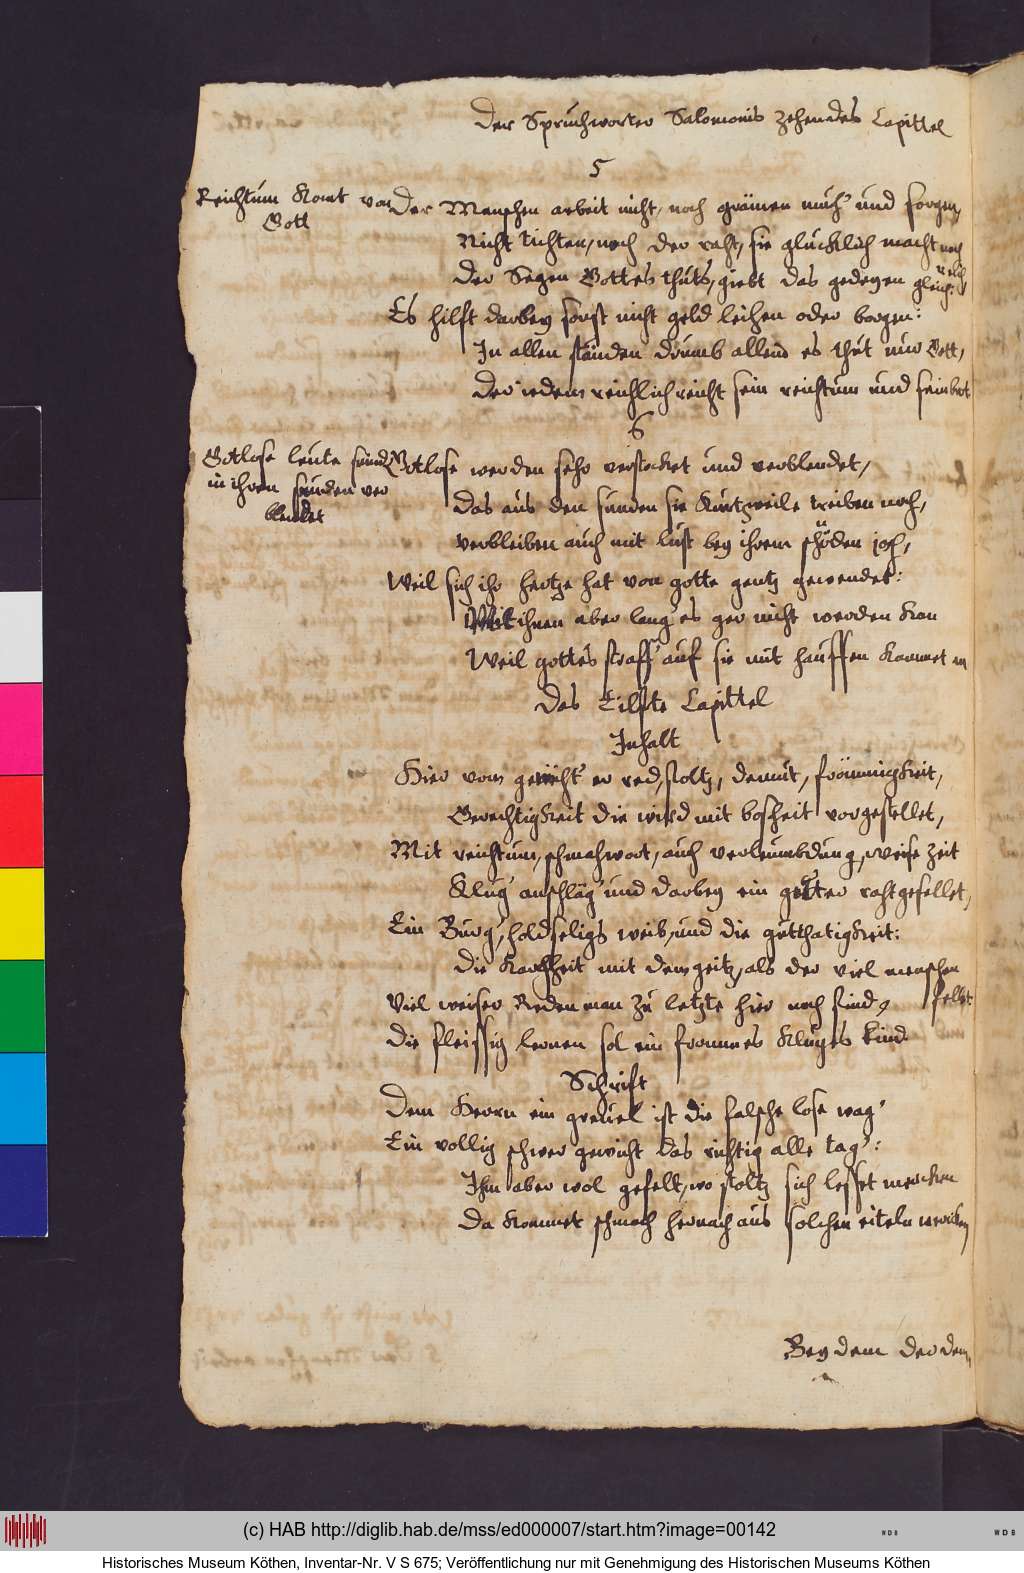 Der Spruchworter Salomonis zehendes Capittel
5
Reichtum komt von
Gott
Der Menschen arbeit nicht, noch grämen müh' und sorgen,
Nicht tichten, noch der raht, sie glücklich macht noch
reich
Der Segen Gottes thuts, giebt das gedeyen gleich:
Es hilft darbey sonst nicht geld leihen oder borgen:
In allen ständen drumb allein es thut nur Gott,
Der iedem reichlich reicht sein reichtum und sein brot
6
Gotlose leute seind
in ihren sunden ver
blendet
Gotlose werden sehr verstocket und verblendet,
Das aus den sunden sie kurtzweile treiben noch,
verbleiben auch mit lust bey ihrem schöden joch,
Weil sich ihr hertze hat von gotte gentz gewendet:
Mit ihnen aber lang es gar nicht werden kan
Weil gottes straff' auf sie mit hauffen kommet an
Das Eilfte Capittel
Inhalt
Hier vom gewicht' er red, stoltz, demut, frömmigkeit,
Gerechtigkeit die wird mit bosheit vorgestellet,
Mit reichtum, schmahwort, auch verleumbdung, weise zeit
Klug' anschläg' und darbey ein guter raht gefellet,
Ein Burg', holdseligs weib, und die gutthatigkeit:
Die Kargheit mit dem geitz, als der viel menschen
fellet
Viel weiser Reden man zu letzte hier noch find,
Die fleissig lernen sol ein frommes kluges kind
Schrift
Dem Herrn ein greuel ist die falsche lose wag'
Ein vollig schwer gewicht das richtig alle tag':
Ihm aber wol gefelt, wo stoltz sich lesset mercken
Da kommet schmach hernach aus solchen eiteln wercken
Bey dem der dem,